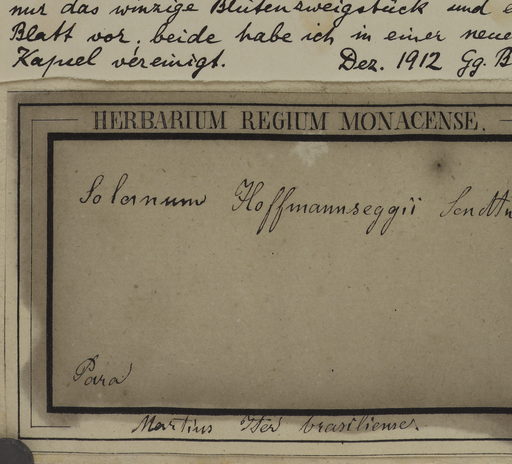 nur das winzige Blütenzweigstück und e
Blatt vor, beide habe ich in einer neue
Kapsel vereinigt. Dez. 1912 Gg. B
HERBARIUM REGIUM MONACENSE.
Solanum Hoffmannseggii Sendtn
Para
Martius Iter brasiliense.